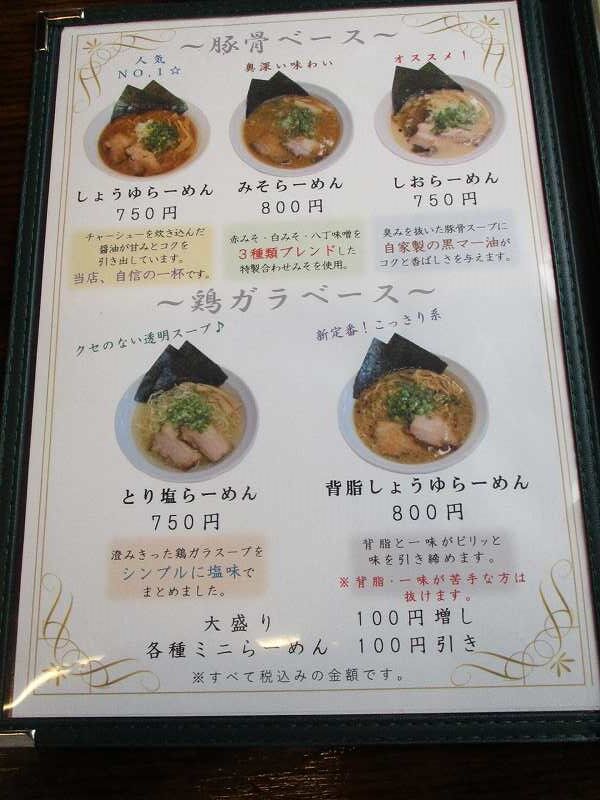 ～豚骨ベース～
人気
NO.1☆
奥深い味わい
オススメ！
しょうゆらーめん
750円
みそらーめん
800円
しおらーめん
750円
チャーシューを炊き込んだ
醤油が甘みとコクを
引き出しています。
当店、自信の一杯です。
赤みそ・白みそ・八丁味噌を
3種類ブレンドした
特製合わせみそを使用。
臭みを抜いた豚骨スープに
自家製の黒マー油が
コクと香ばしさを与えます。
～鶏ガラベース～
クセのない透明スープ♪
新定番！こっきり系
とり塩らーめん
750円
背脂しょうゆらーめん
800円
澄みきった鶏ガラスープを
シンプルに塩味で
まとめました。
背脂と一味がピリッと
味を引き締めます。
※背脂・一味が苦手な方は
抜けます。
大盛り 100円増し
各種ミニらーめん 100円引き
※すべて税込みの金額です。